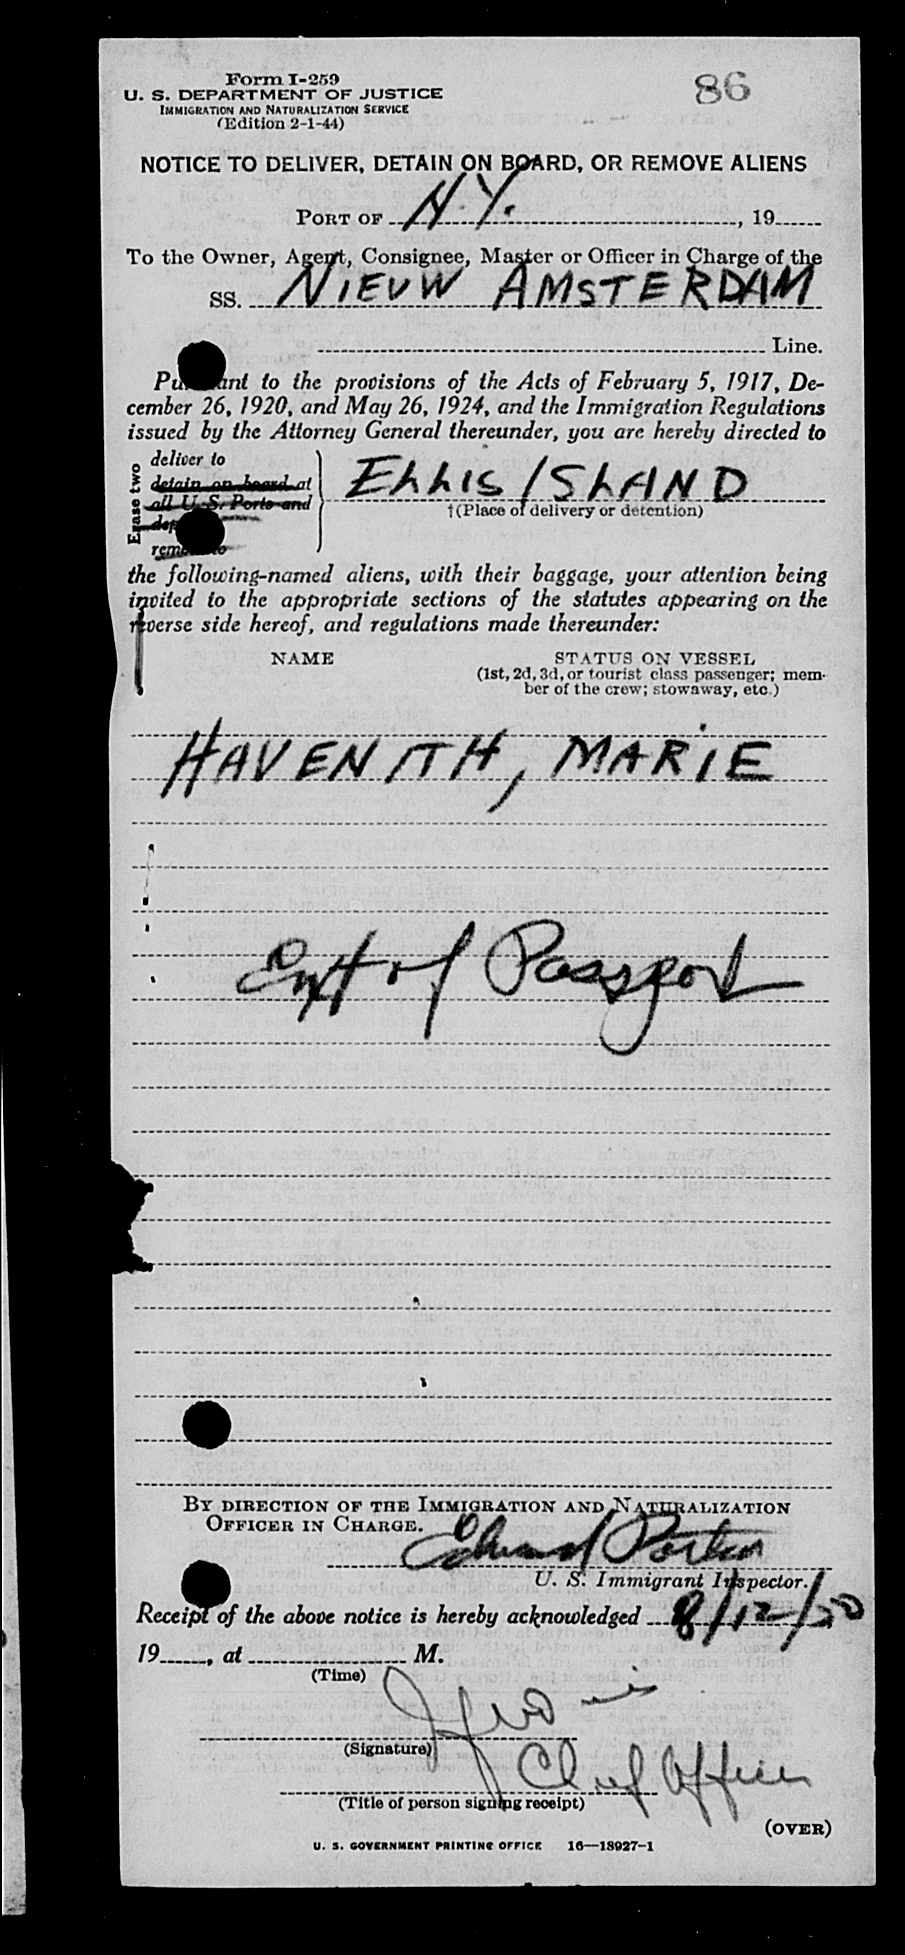 Form I-259
86
U. S. DEPARTMENT OF JUSTICE
IMMIGRATION AND NATURALIZATION SERVICE
(Edition 2-1-44)
NOTICE TO DELIVER, DETAIN ON BOARD, OR REMOVE ALIENS
PORT OF N.Y. , 19
To the Owner, Agent, Consignee, Master or Officer in Charge of the
SS. NIEUW AMSTERDAM
Line.
Pursuant to the provisions of the Acts of February 5, 1917, De-
cember 26, 1920, and May 26, 1924, and the Immigration Regulations
issued by the Attorney General thereunder, you are hereby directed to
Erase two
deliver to
detain on board at
all U. S. Ports and
remove to
ELLIS ISLAND
†(Place of delivery or detention)
the following-named aliens, with their baggage, your attention being
invited to the appropriate sections of the statutes appearing on the
reverse side hereof, and regulations made thereunder:
NAME STATUS ON VESSEL
(1st, 2d, 3d, or tourist class passenger; mem-
ber of the crew; stowaway, etc.)
HAVENITH, MARIE
Ext of Passport
BY DIRECTION OF THE IMMIGRATION AND NATURALIZATION
OFFICER IN CHARGE.
Edward Porter
U. S. Immigrant Inspector.
Receipt of the above notice is hereby acknowledged 8/12/50
19 , at M.
(Time)
(Signature)
Chief Officer
(Title of person signing receipt)
(OVER)
U. S. GOVERNMENT PRINTING OFFICE 16—18927-1